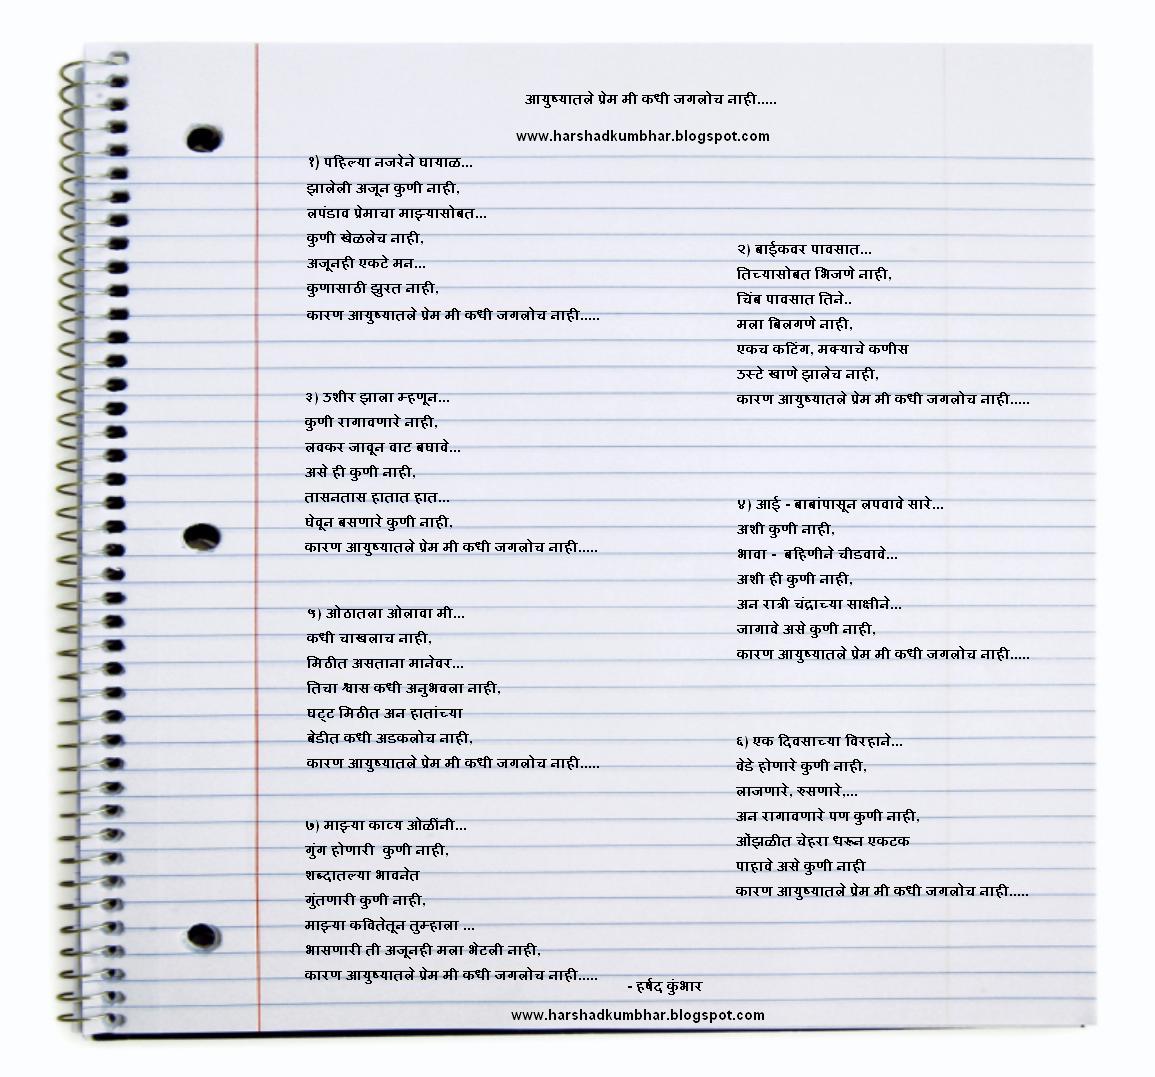 आयुष्यातले प्रेम मी कधी जगलोच नाही.....
www.harshadkumbhar.blogspot.com
१) पहिल्या नजरेने घायाळ...
झालेली अजून कुणी नाही,
लपंडाव प्रेमाचा माझ्यासोबत...
कुणी खेळलेच नाही,
अजूनही एकटे मन...
कुणासाठी झुरत नाही,
कारण आयुष्यातले प्रेम मी कधी जगलोच नाही.....
२) बाईकवर पावसात...
तिच्यासोबत भिजणे नाही,
चिंब पावसात तिने..
मला बिलगणे नाही,
एकच कटिंग, मक्याचे कणीस
उस्टे खाणे झालेच नाही,
कारण आयुष्यातले प्रेम मी कधी जगलोच नाही.....
३) उशीर झाला म्हणून...
कुणी रागावणारे नाही,
लवकर जावून वाट बघावे...
असे ही कुणी नाही,
तासनतास हातात हात...
घेवून बसणारे कुणी नाही,
कारण आयुष्यातले प्रेम मी कधी जगलोच नाही.....
४) आई - बाबांपासून लपवावे सारे...
अशी कुणी नाही,
भावा - बहिणीने चीडवावे...
अशी ही कुणी नाही,
अन रात्री चंद्राच्या साक्षीने...
जागावे असे कुणी नाही,
कारण आयुष्यातले प्रेम मी कधी जगलोच नाही.....
५) ओठातला ओलावा मी...
कधी चाखलाच नाही,
मिठीत असताना मानेवर...
तिचा श्वास कधी अनुभवला नाही,
घट्ट मिठीत अन हातांच्या
बेडीत कधी अडकलोच नाही,
कारण आयुष्यातले प्रेम मी कधी जगलोच नाही.....
६) एक दिवसाच्या विरहाने...
वेडे होणारे कुणी नाही,
लाजणारे, रुसणारे,...
अन रागावणारे पण कुणी नाही,
ओंझळीत चेहरा धरून एकटक
पाहावे असे कुणी नाही
कारण आयुष्यातले प्रेम मी कधी जगलोच नाही.....
७) माझ्या काव्य ओळींनी...
गुंग होणारी कुणी नाही,
शब्दातल्या भावनेत
गुंतणारी कुणी नाही,
माझ्या कवितेतून तुम्हाला ...
भासणारी ती अजूनही मला भेटली नाही,
कारण आयुष्यातले प्रेम मी कधी जगलोच नाही.....
- हर्षद कुंभार
www.harshadkumbhar.blogspot.com